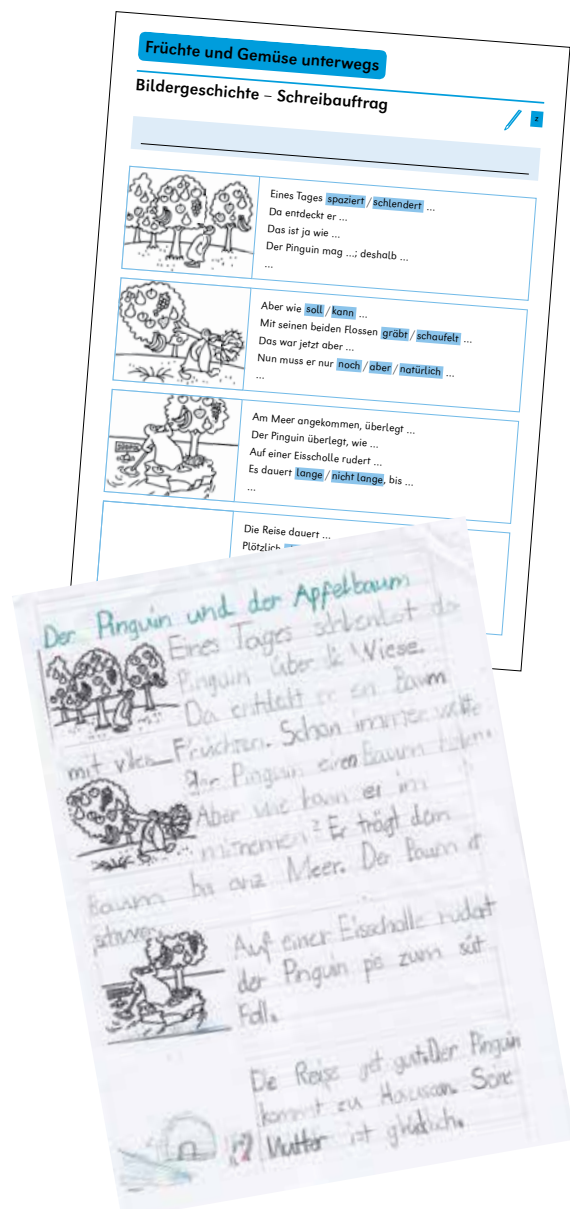 Früchte und Gemüse unterwegs
Bildergeschichte – Schreibauftrag
Eines Tages spaziert / schlendert ...
Da entdeckt er ...
Das ist ja wie ...
Der Pinguin mag ...; deshalb ...
...
Aber wie soll / kann ...
Mit seinen beiden Flossen gräbt / schaufelt ...
Das war jetzt aber ...
Nun muss er nur noch / aber / natürlich ...
...
SÜDPOL
Am Meer angekommen, überlegt ...
Der Pinguin überlegt, wie ...
Auf einer Eisscholle rudert ...
Es dauert lange / nicht lange, bis ...
...
Die Reise dauert ...
Plötzlich
Der Pinguin und der Apfelbaum
Eines Tages schlendert der
Pinguin über die Wiese.
Da entdekt er en Baum
mit vilen Früchten. Schon immer wollte
der Pinguin einen Baum
Aber wie kann er im
mitnemen? Er trägt dem
Baum bis anz Meer. Der Baum it
schwer.
Auf einer Eisscholle rudert
der Pinguin pis zum süt
Foll.
De Reise get gut. Der Pinguin
kommt zu Hause an. Seine
Mutter ist glücklich.